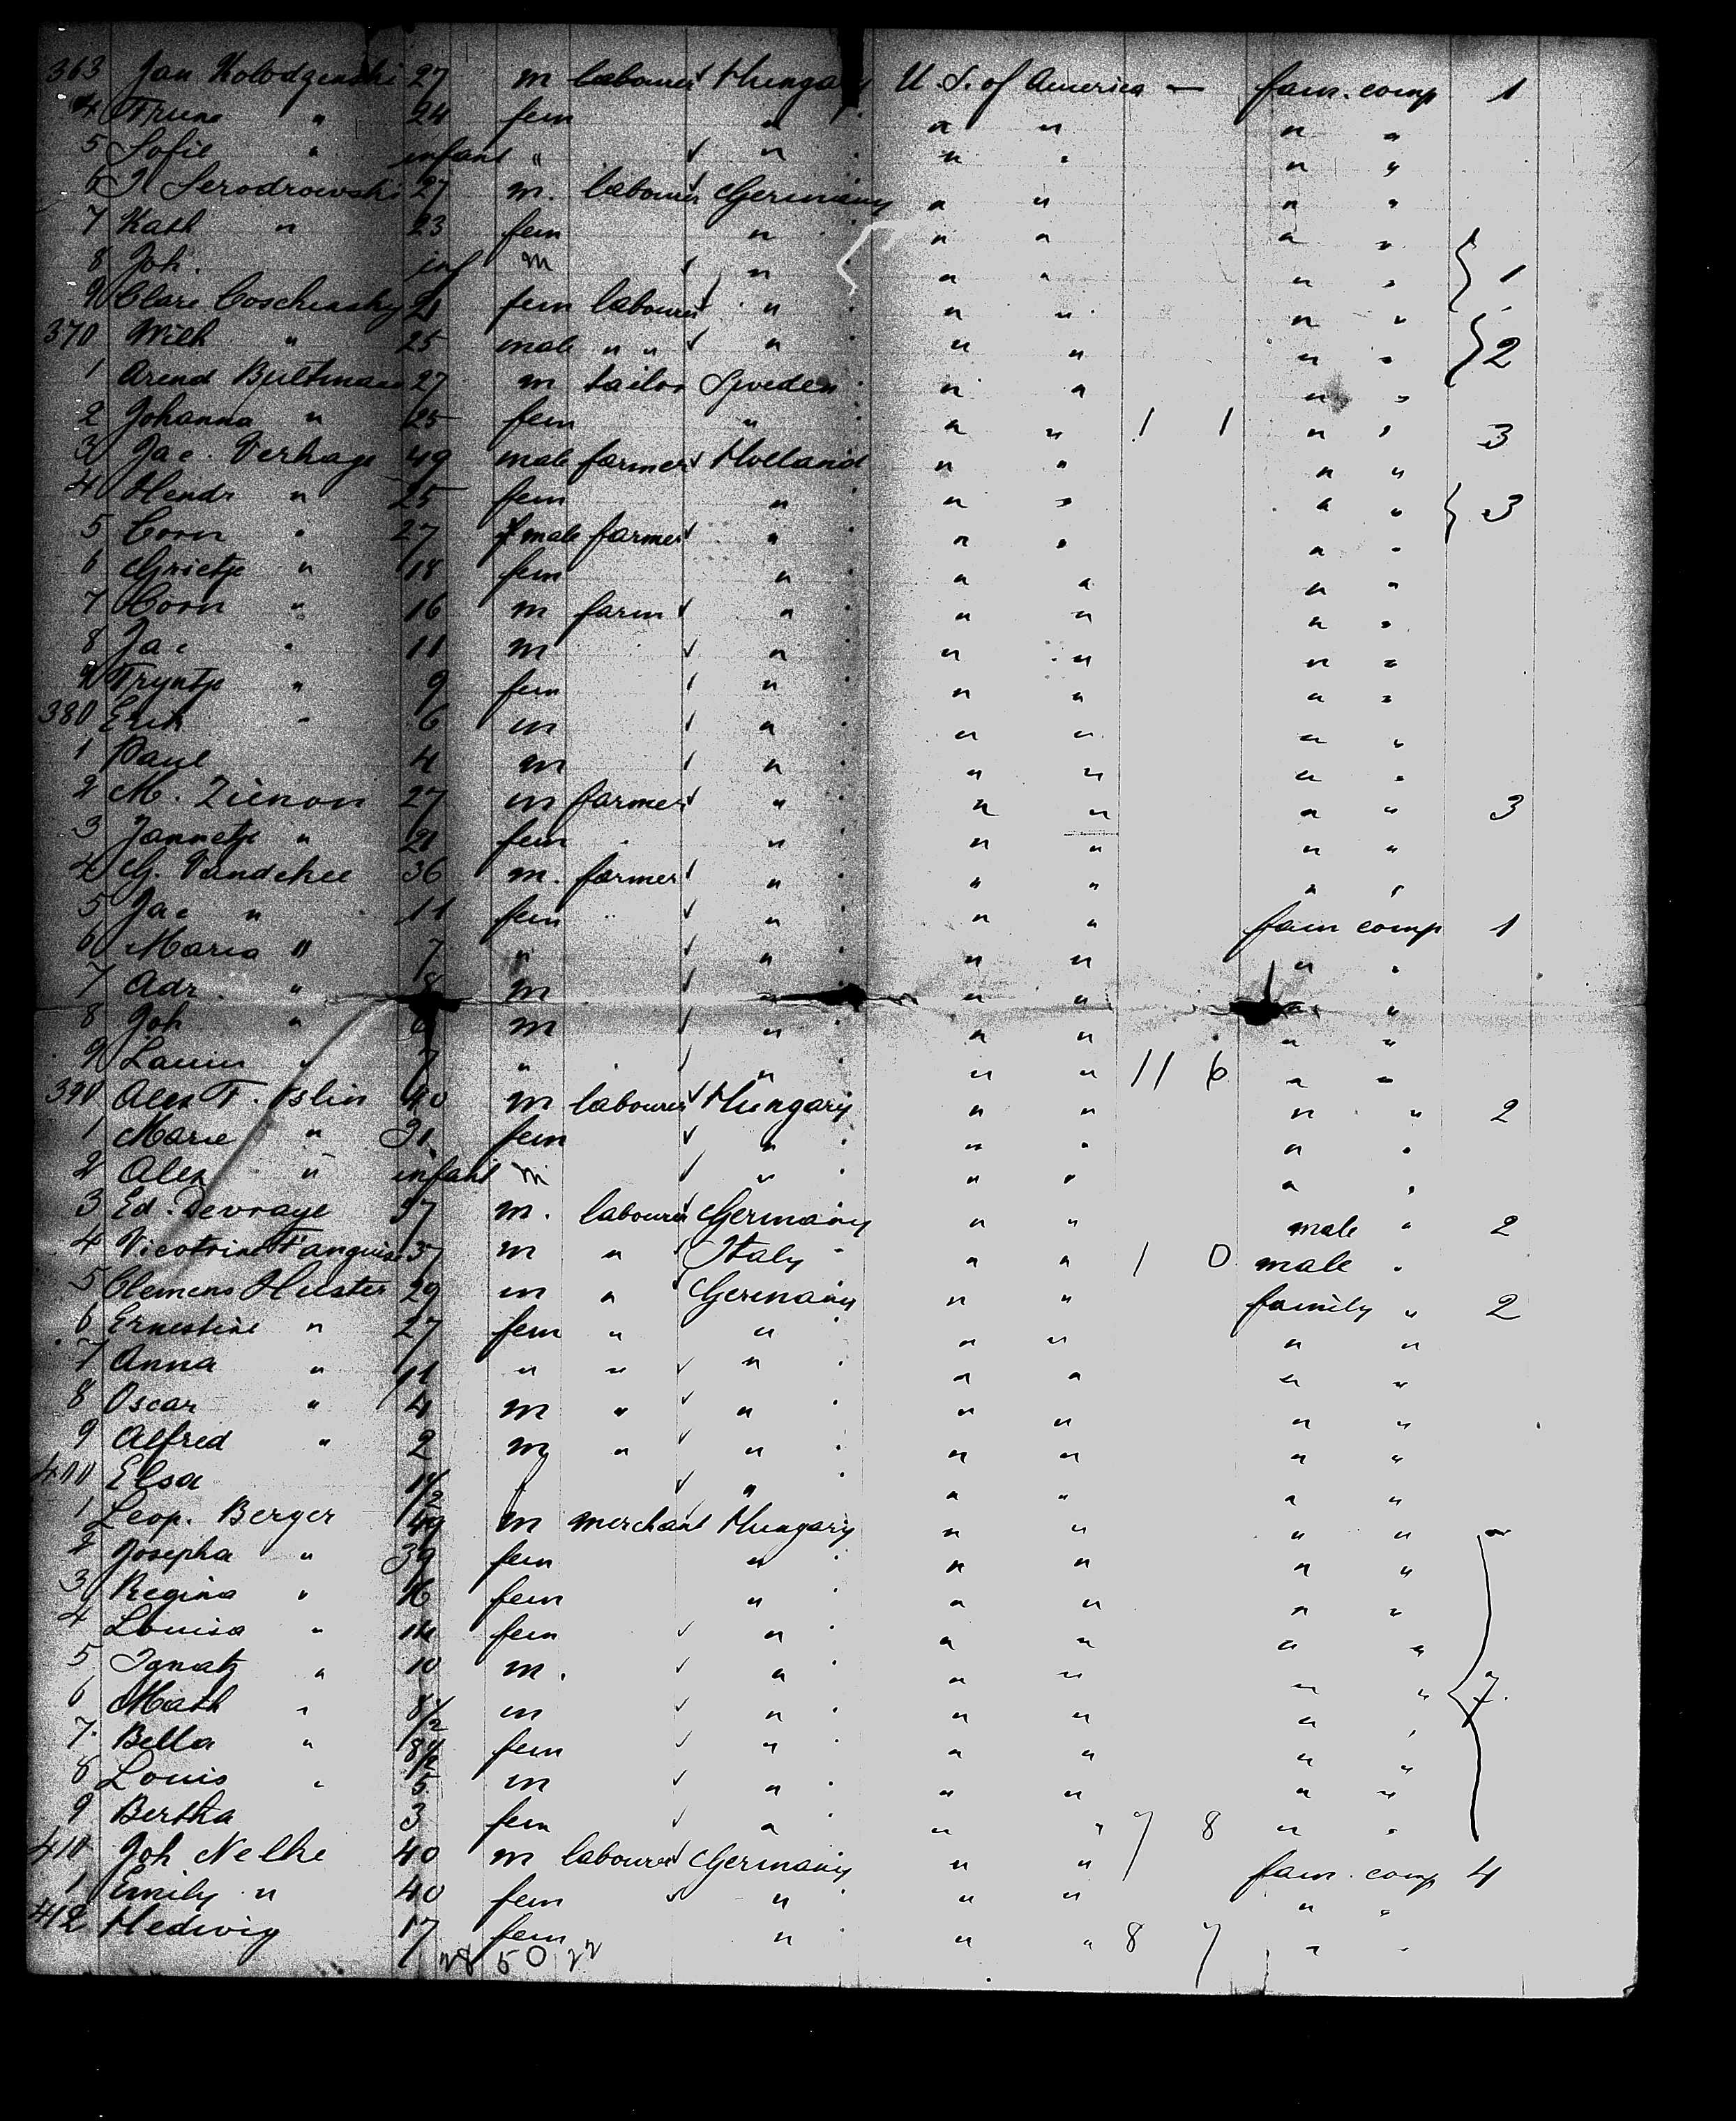 363 Jan Kolodzenski 27 m labourer Hungary U. S. of America — fam. comp 1
4 " 24 fem " " " " "
5 Sofie " infant " " " " " "
6 J Serodrowski 27 m. labourer Germany " " " "
7 Kath " 23 fem " " " " "
8 Joh. inf m " " " " " 1
9 Clara Coschensky 21 fem labourer " " " " "
370 Wilh " 25 male " " " " " " " 2
1 Arend Bultmann 27 m tailor Sweden " " " "
2 Johanna " 25 fem " " " 1 1 " " 3
3 Jac. Verhage 49 male farmer Holland " " " "
4 Hendr " 25 fem " " " " " 3
5 Corn " 27 male farmer " " " " "
6 Grietje " 18 fem " " " " "
7 Corn " 16 m farm " " " " "
8 Jac " 11 m " " " " "
9 Tryntje " 9 fem " " " " "
380 " 6 m " " " " "
1 Paul 4 m " " " " "
2 M. Zienon 27 m farmer " " " " " 3
3 Jannetje " 21 fem " " " " "
4 G. Vandehee 36 m. farmer " " " " "
5 Jac " 11 fem " " " fam comp 1
6 Maria " 7 " " " " " "
7 Adr. " 8 m " " " " "
8 Joh " m " " " " "
9 " 7 " " " " 11 6 " "
390 Alex T. Islin 40 m labourer Hungary " " " " 2
1 Marie " 31 fem " " " " "
2 Alex " infant m " " " " "
3 Ed. Devraye 37 m. labourer Germany " " male " 2
4 37 m " Italy " " 1 0 male "
5 Clemens Huster 29 m " Germany " " family " 2
6 Ernestine " 27 fem " " " " " "
7 Anna " 11 " " " " " " "
8 Oscar " 4 m " " " " " "
9 Alfred " 2 m " " " " " "
400 Elsa 1/2 f " " " " "
1 Leop. Berger 49 m merchant Hungary " " " "
2 Josepha " 39 fem " " " " "
3 Regina " 16 fem " " " " "
4 Louisa " 14 fem " " " " "
5 Ignatz " 10 m. " " " " "
6 Math " 8 1/2 m " " " " " 7.
7. Bella " 8 1/2 fem " " " " "
8 Louis " 5 m " " " " "
9 Bertha 3 fem " " " 7 8 " "
410 Joh Nelke 40 m labourer Germany " " fam. comp 4
1 Emily " 40 fem " " " " "
412 Hedwig 17 fem " " " 8 7 " "
28 50 22